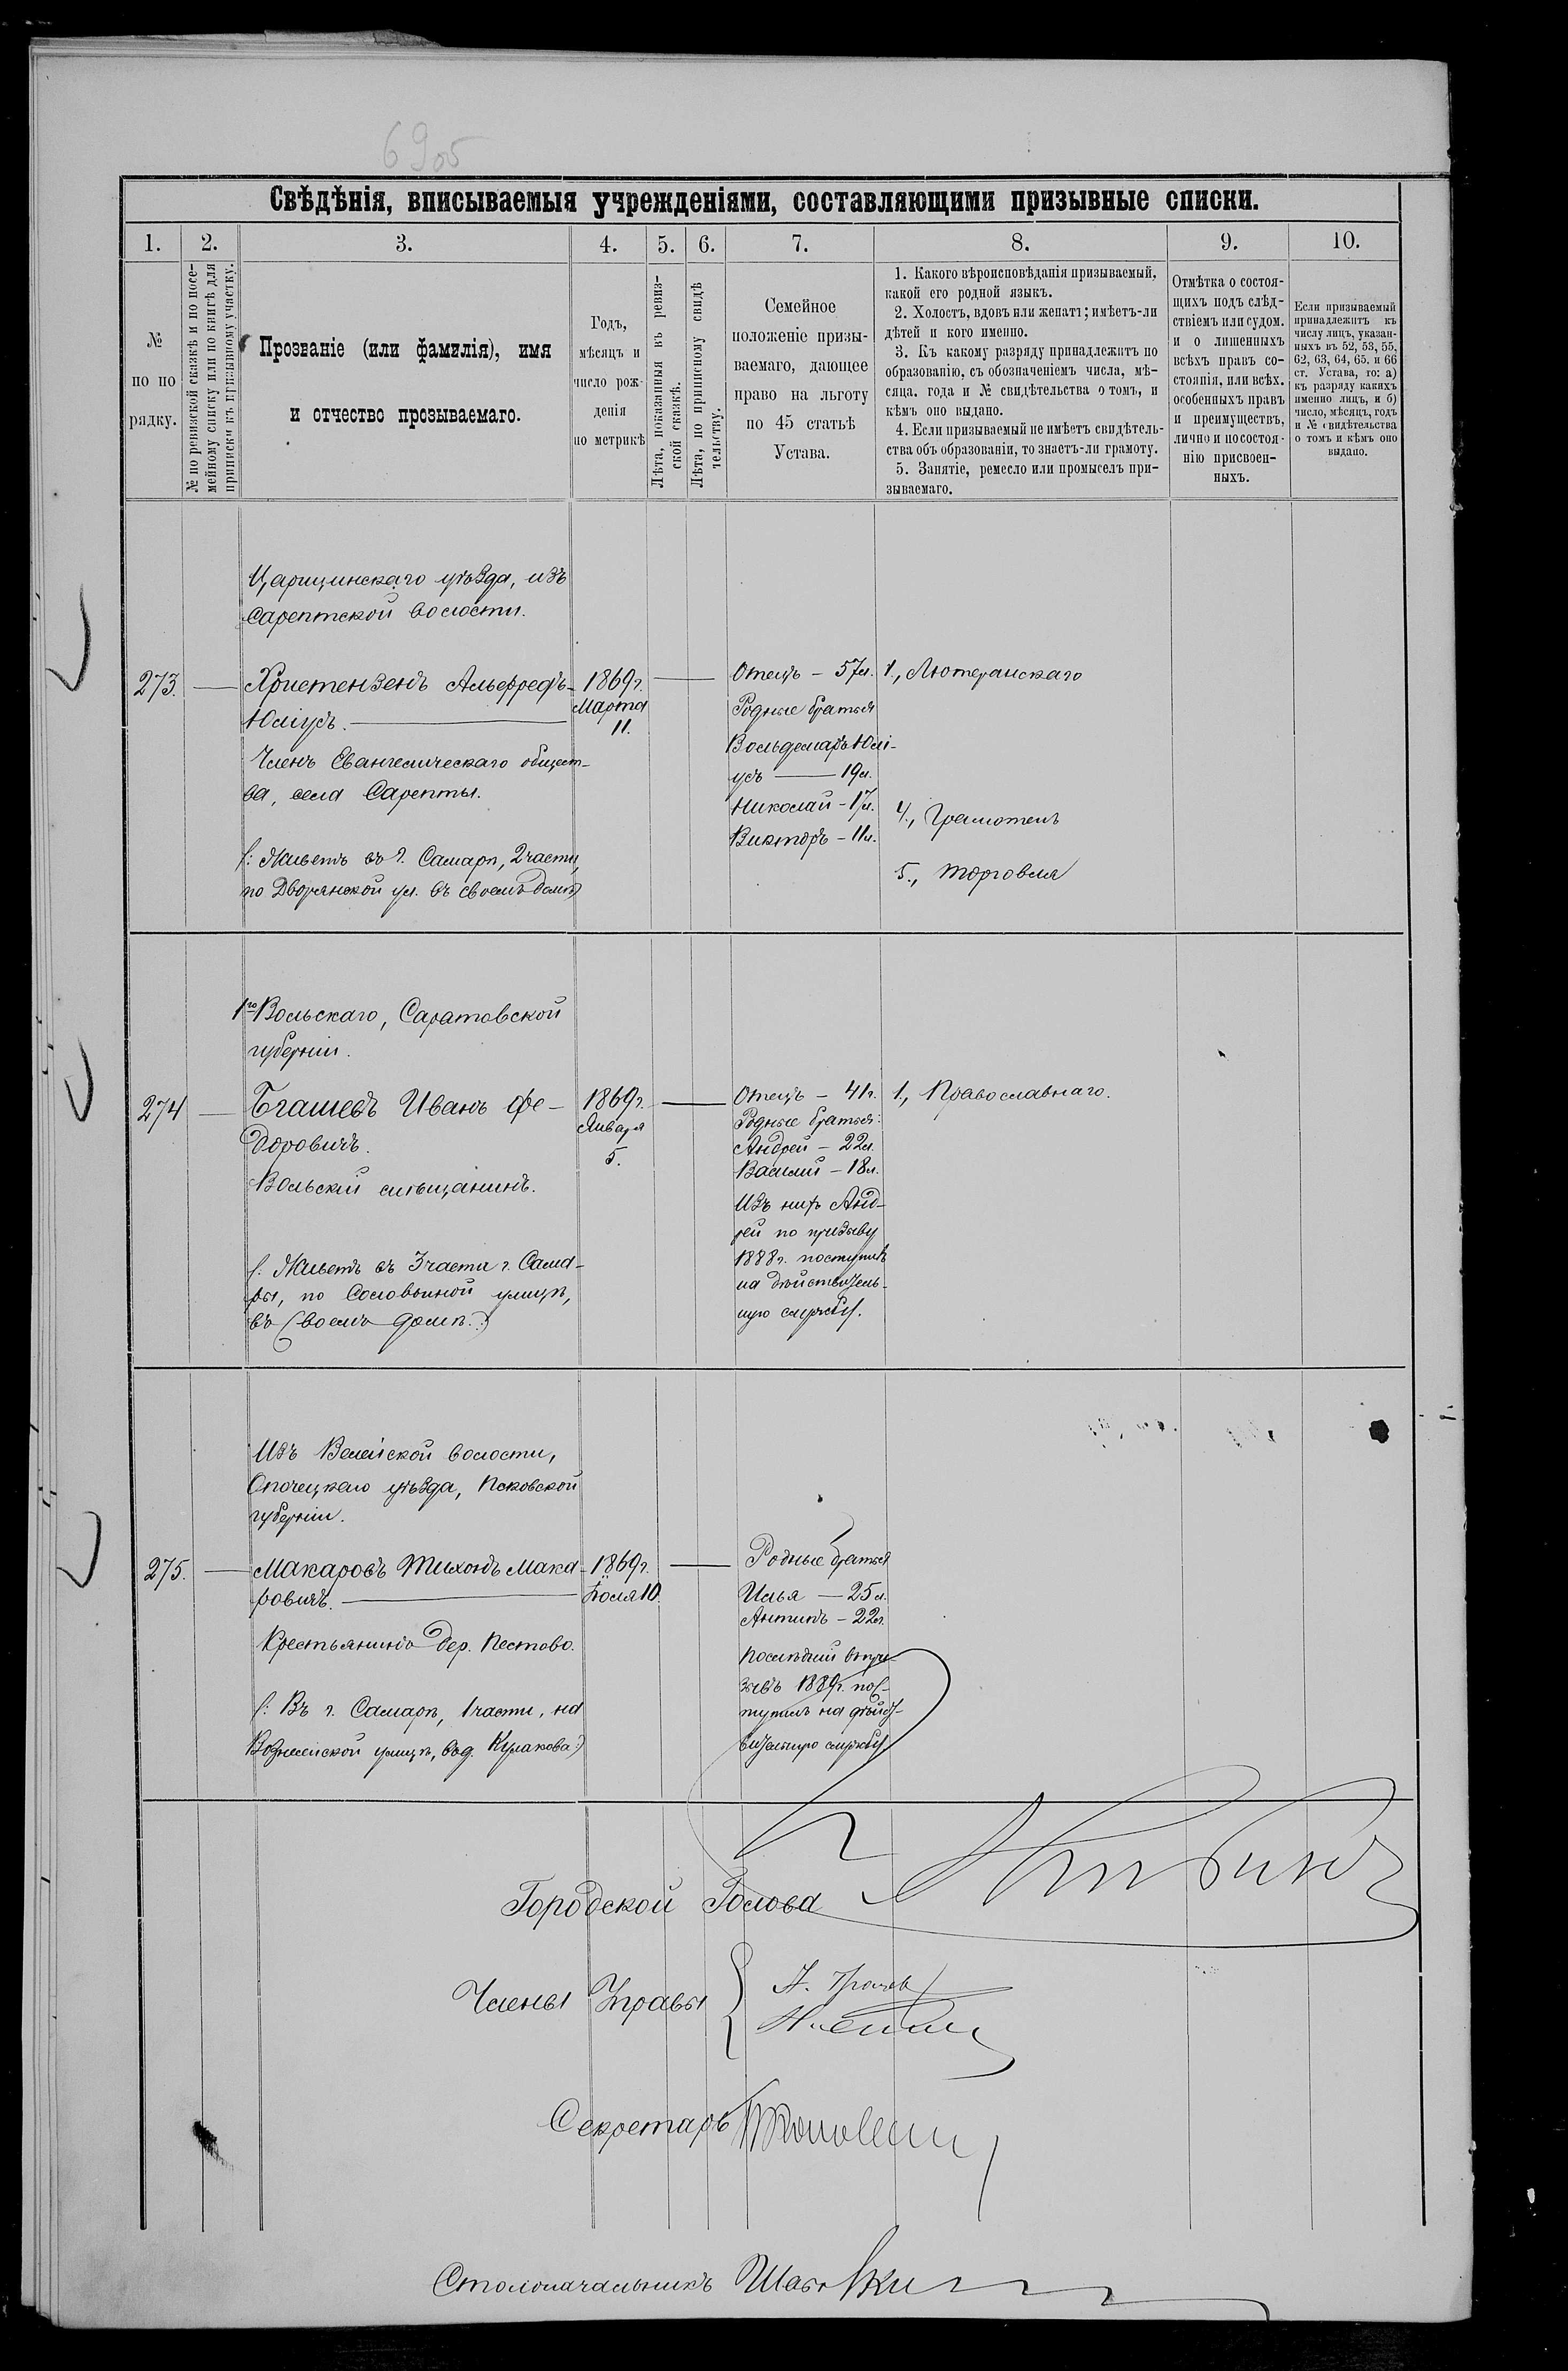 6905
Свѣдѣнія, вписываемыя учрежденіями, составляющими призывные списки.
1. 2. 3. 4. 5. 6. 7. 8. 9. 10.
№
по по
рядку.
№ по ревизской сказкѣ и по посе-
мейному списку или по книгѣ для
приписки къ призывному участку.
Прозваніе (или фамилія), имя
и отчество прозываемаго.
Годъ,
мѣсяцъ и
число рож-
денія
по метрикѣ
Лѣта, показанныя въ ревиз-
ской сказкѣ.
Лѣта, по приписному свидѣ
тельству.
Семейное
положеніе призы-
ваемаго, дающее
право на льготу
по 45 статьѣ
Устава.
1. Какого вѣроисповѣданія призываемый,
какой его родной языкъ.
2. Холостъ, вдовъ или женатъ; имѣетъ-ли
дѣтей и кого именно.
3. Къ какому разряду принадлежитъ по
образованію, съ обозначеніемъ числа, мѣ-
сяца, года и № свидѣтельства о томъ, и
кѣмъ оно выдано.
4. Если призываемый не имѣетъ свидѣтель-
ства объ образованіи, то знаетъ-ли грамоту.
5. Занятіе, ремесло или промыселъ при-
зываемаго.
Отмѣтка о состоя-
щихъ подъ слѣд-
ствіемъ или судом.
и о лишенныхъ
всѣхъ правъ со-
стоянія, или всѣх.
особенныхъ правъ
и преимуществъ,
лично и по состоя-
нію присвоен-
ныхъ.
Если призываемый
принадлежитъ къ
числу лицъ, указан-
ныхъ въ 52, 53, 55,
62, 63, 64, 65. и 66
ст. Устава, то: а)
къ разряду какихъ
именно лицъ, и б)
число, мѣсяцъ, годъ
и № свидѣтельства
о томъ и кѣмъ оно
выдано.
Царицинскаго уѣзда, изъ
Сарептской волости.
273.
Христензенъ Альфредъ
Юліусъ.
Членъ Евангелическаго общест-
ва, села Сарепты.
(: Живетъ въ г. Самарѣ, 2 части,
по Дворянской ул. въ своемъ домѣ)
1869 г.
Марта
11.
Отецъ - 57 л.
Родные братья
Вольдемаръ Юлі-
усъ - 19 л.
Николай - 17 л.
Викторъ - 11 л.
1., Лютеранскаго
4., Грамотенъ
5., торговля
1го Вольскаго, Саратовской
губерніи.
274
Бгашевъ Иванъ Фе-
доровичъ.
Вольскій мѣщанинъ.
(: Живетъ въ 3 части г. Сама-
ры, по Соловьиной улицѣ,
въ своемъ домѣ.:)
1869 г.
Января
5.
Отецъ - 41 г.
Родные братья:
Андрей - 22 л.
Василій - 18 л.
Изъ нихъ Анд-
рей по призыву
1888 г. поступилъ
на дѣйствитель-
ную службу.
1., Православнаго.
Изъ Велейской волости,
Опочецкаго уѣзда, Псковской
губерніи.
275.
Макаровъ Тихонъ Мака-
ровичъ.
Крестьянинъ дер. Пестово.
(: Въ г. Самарѣ, 1 части, на
Вознесенской улицѣ, въ д. Кулакова:)
1869 г.
Іюля 10.
Родные братья
Илья - 25 л.
Антипъ - 22 л.
Послѣдній въ при-
зывъ 1889 г. пос-
тупилъ на дѣйст-
вительную службу
Городской Голова
Члены Управы
Секретарь
Столоначальникъ